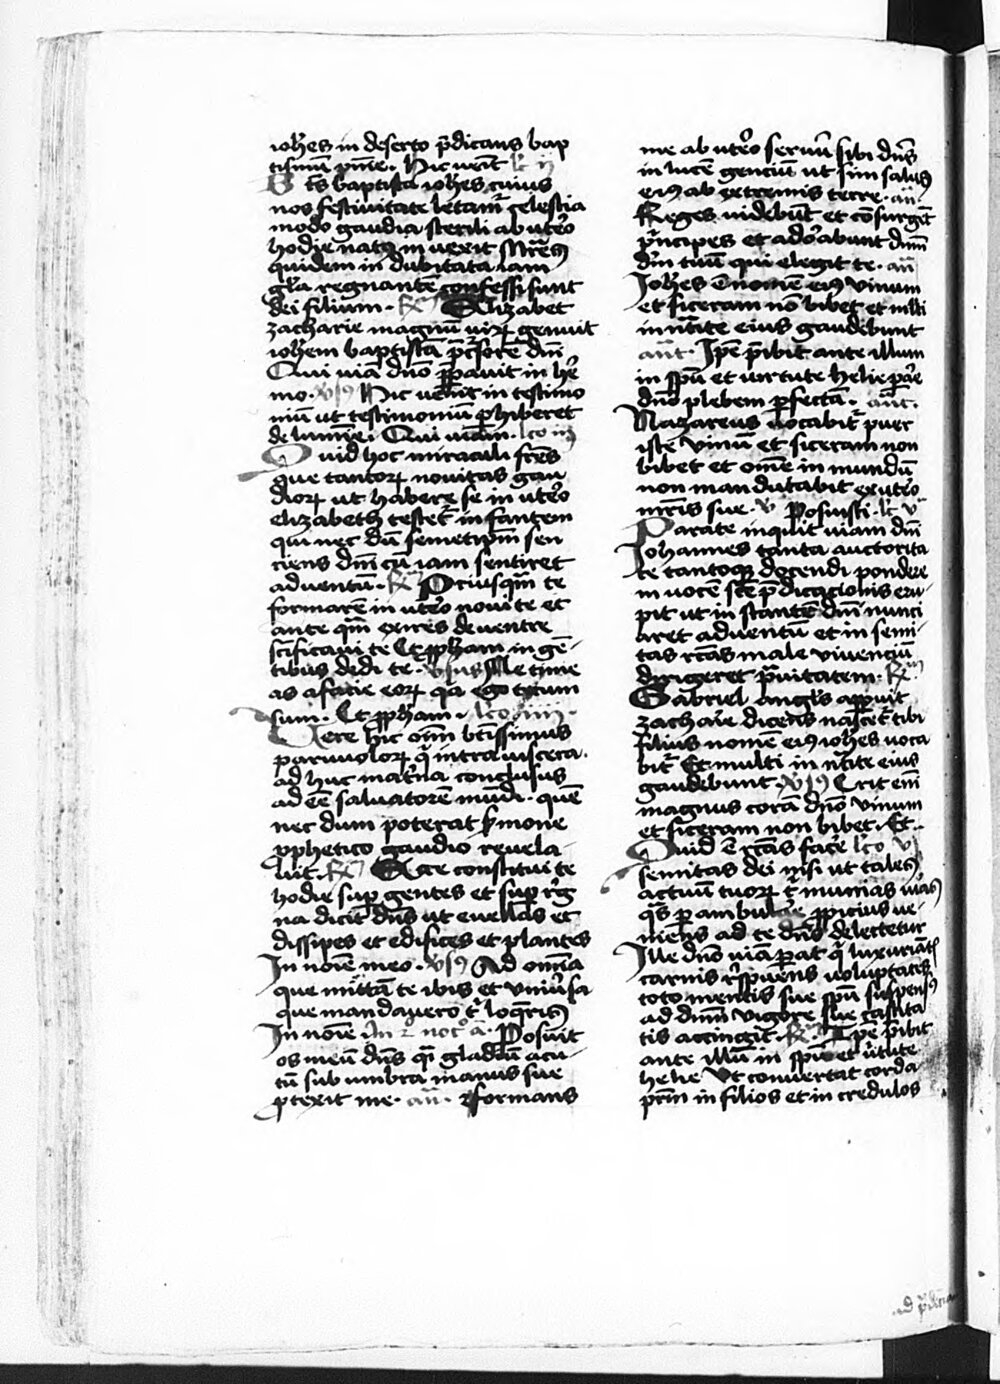 ioh̄es in deserto p̄dicans bap
tismū pn̄ie. Hic ven̄t lc̄ ij
E t̄s baptista ioh̄es cuius
nos festivitate letam̄r celestia
modo gaudia sterili ab ute̓o
hodie natꝰ in vexit Mr̄esꝰ
quidem in dubitata iam
gl̄a regnantē confessi sunt
dei filium. R̄ Elizabet
zacharie magnū virꝝ genuit
ioh̄em baptistā p̄c̓sorē dn̄i
Qui viā dn̄o p̄pavit in he̓
mo. vsꝰ Hic ven̄it in testimo
niū ut testimoniū ꝑhiberet
de lumīe. Qui viam. lco iijͣ
Quid hoc miraculi fr̄es
que tantorꝝ novitas gau
diorꝝ ut habere se in ute̓o
elizabeth testet̄ in fantem
qui nec dū semetip̄m sen
ciens dn̄m cū iam sentiret
adventū. R̄ Priusqͣm te
formarē in ute̓o novi te et
ante qͣm exires de ventre
sc̄ificavi te Et ꝓph̄am in gē
tibus dedi te. vsus Ne time
as a facie eorꝝ qͣa ego tecum
sum. Et ꝓph̄am. lco iiii
Vere hic om̄i btīssimus
parvulorꝝ qͥ intra viscera.
ad huc mat̓na conclusus
ad eē salvatorē mūdi. quē
nec dum poterat s̓mone
ꝓphetico gaudio revela
vit. R̄ Ecce constitui te
hodie sup̄ gentes et sup̄ r̓g
na dicit dn̄s ut evellas et
dissipes et edifices et plantes
In noīe meo. vsꝰ Ad omīa
que mittā te ibis et univ̓sa
que mandavero t̓ loq̄risꝰ
In noīe In 2 noc̊ ā. Posuit
os meū dn̄s qͣi gladiū acu
tū sub umbra manus sue
ꝓtexit me. an̄. formans
me ab ute̓o servū sibi dn̄s
in lucē genciū ut sim salus
eiꝰ ab extremis terre. an̄
Reges videbūt et cōsurgēt
p̓ncipes et ado̓abunt dn̄m
dm̄ tuū qui elegit te. an̄
Ioh̄es ē nomē eiꝰ vinum
et siceram nō bibet et mlti
in nt̄ite eius gaudebunt
ant̄. Ip̄e p̄ibit ante illum
in sp̄u et virtute helie par̄e
dn̄o plebem ꝑfectā. ant̄.
Nazareus vocabit̄ puer
iste vinū et siceram non
bibet et om̄e in mundū
non manducabit ex ute̓o
mr̄is sue. v Posuisti. lc̄ v
Parate inquit viam dn̄i
Iohannes tanta auctorita
te tantoqꝫ docendi pondere
in vocē sc̄e p̄dicacionis eru
pit ut in stantē dn̄i nunci
aret adventū et in semi
tas rc̄as male viventiū
dirigeret p̓vitatem. R̄
Gabriel angl̄s apparuit
zacharie dicens nascet̄ tibi
filius nomē eiꝰ ioh̄es voca
bit̄ Et multi in nt̄ite eius
gaudebunt. vsꝰ Erit em̄
magnus corā dn̄o vinum
et siceram non bibet. Et.
Quid ē rc̄as fac̄e lco vj
semitas dei nisi ut talesꝰ
actuū tuorꝝ t̓ munias vias
qͣs ꝑ ambulare ꝓpicius ve
niens ad te dn̄s delectetur
Ille dn̄o viā parat qͥ luxuriātꝭ
carnis r̓spuens voluptates
toto mentis sue sp̄u suspensꝰ
ad dn̄m vigore sue castita
tis accingit. R̄ Ip̄e p̄ibit
ante illū in sp̄u et v̓tute
helie Ut convertat corda
pr̄m in filios et in credulos